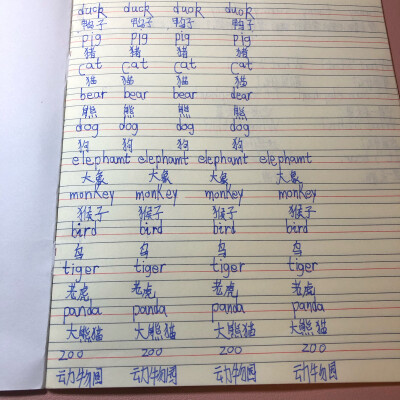 duck duck duck duck
鸭子 鸭子 鸭子 鸭子
pig pig pig pig
猪 猪 猪 猪
cat cat cat cat
猫 猫 猫 猫
bear bear bear dear
熊 熊 熊 熊
dog dog dog dog
狗 狗 狗 狗
elephamt elephamt elephamt elephamt
大象 大象 大象 大象
monkey monkey monkey monkey
猴子 猴子 猴子 猴子
bird bird bird bird
鸟 鸟 鸟 鸟
tiger tiger tiger tiger
老虎 老虎 老虎 老虎
panda panda panda panda
大熊猫 大熊猫 大熊猫 大熊猫
zoo zoo zoo zoo
动物园 动物园 动物园 动物园